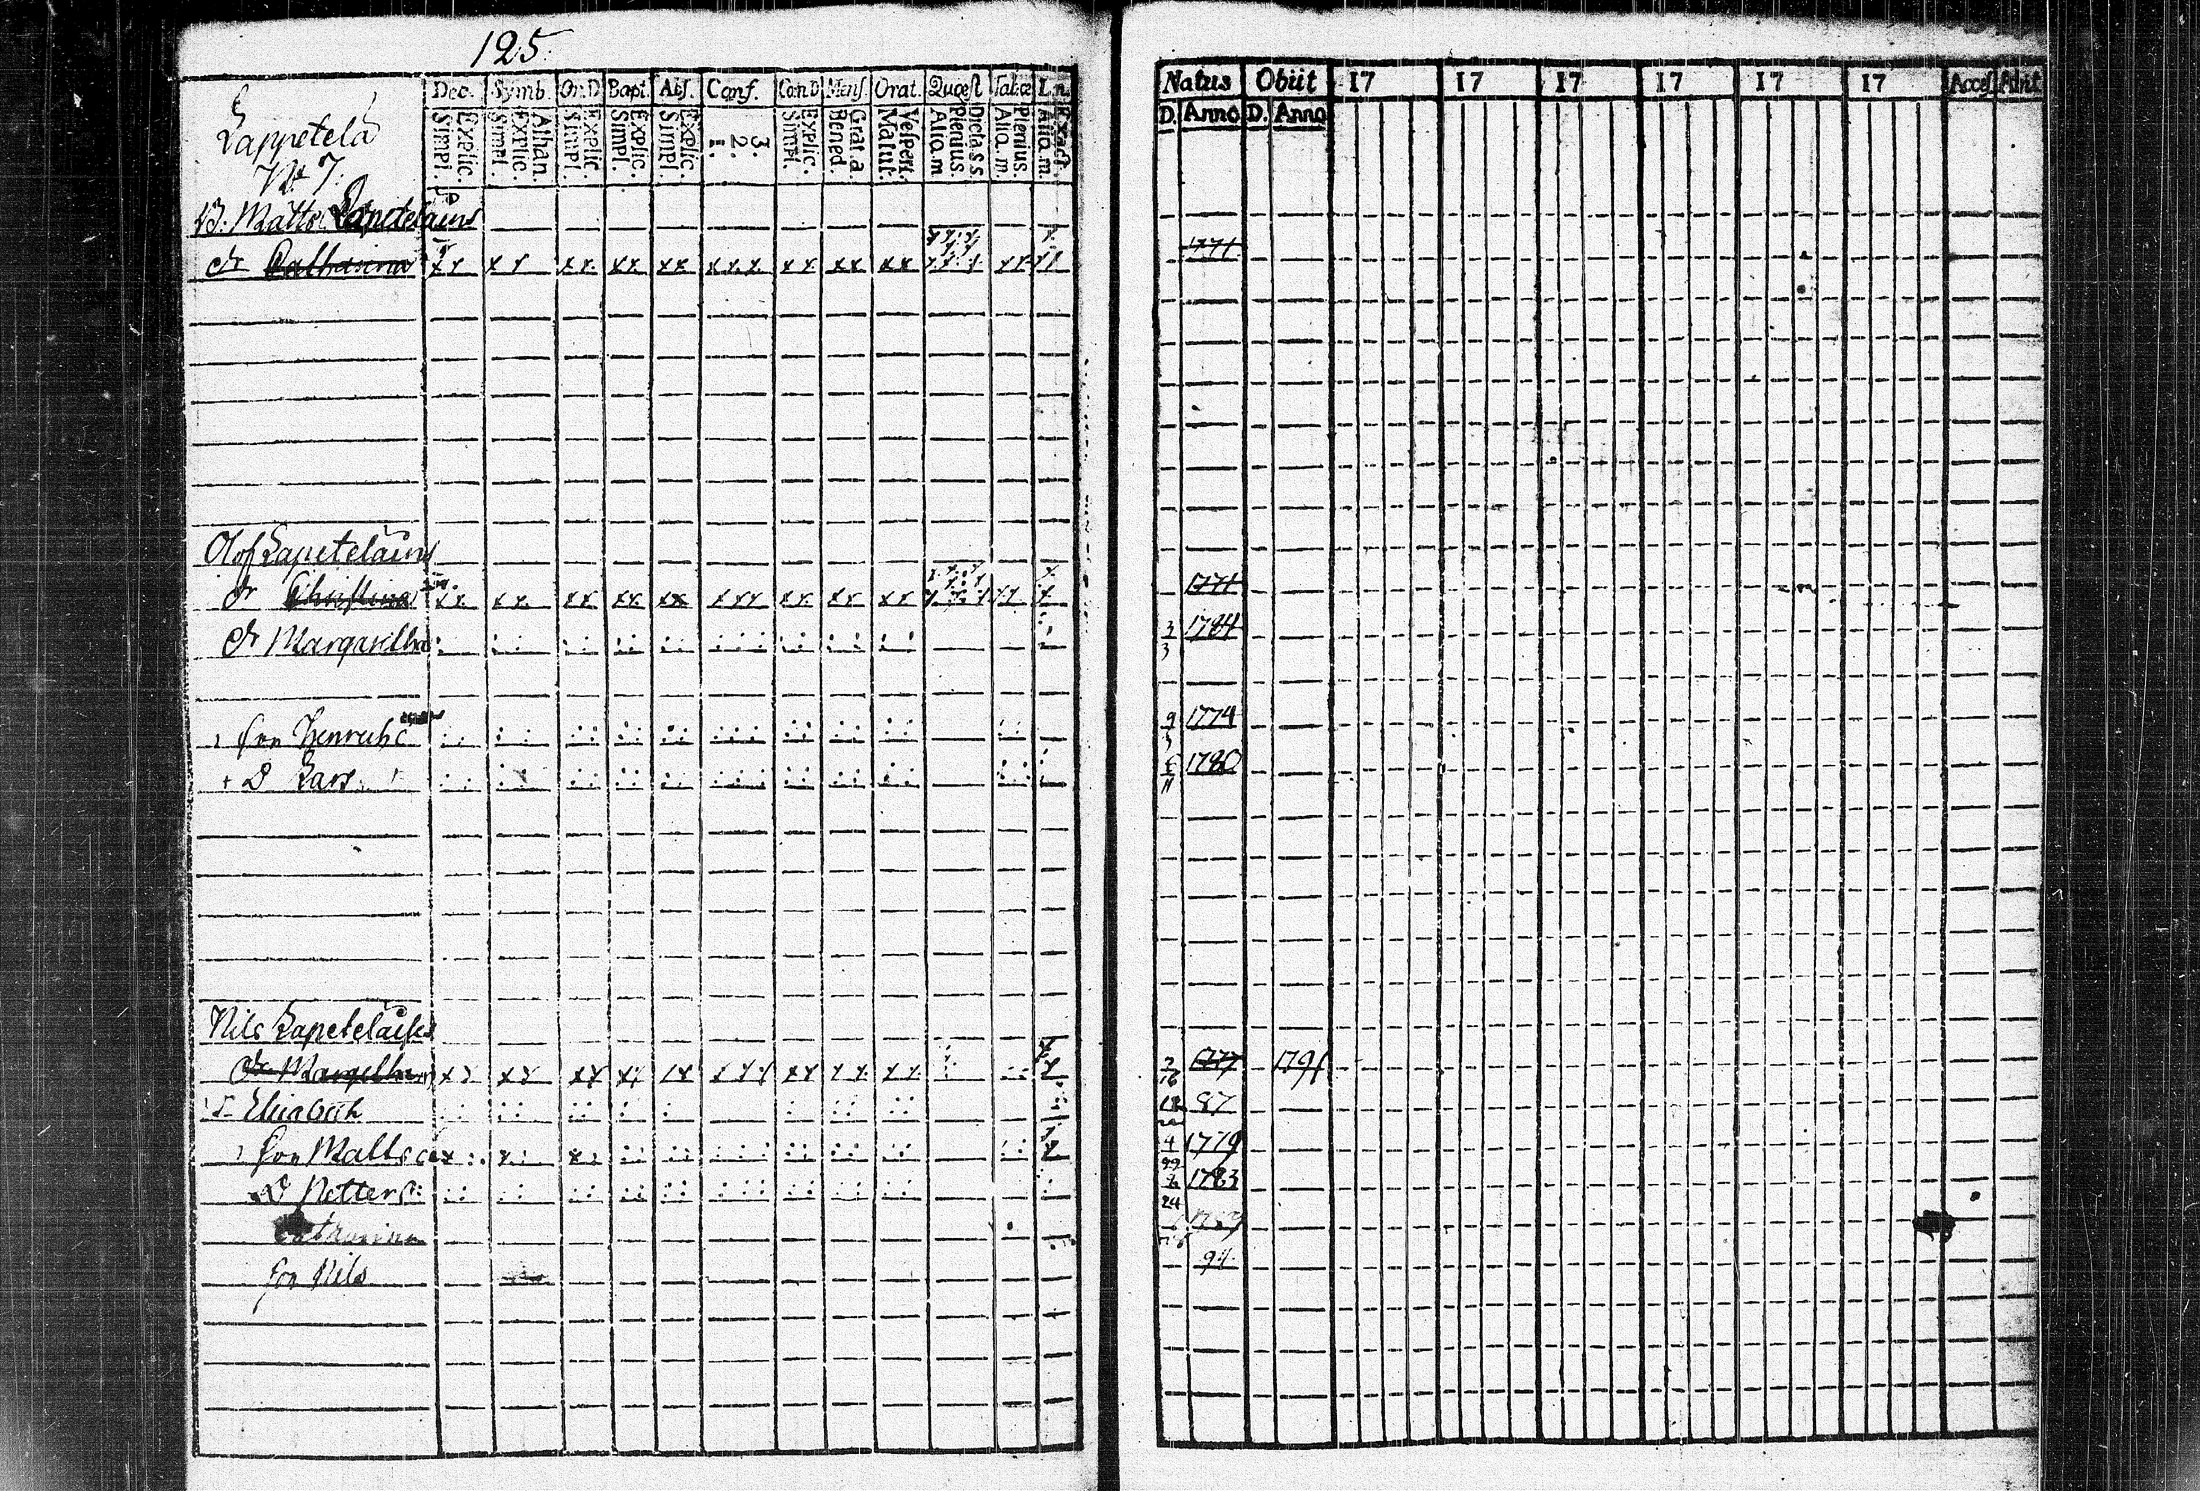 125.
Dec. Symb. Or.D Bapt. Abs. Conf. Cœn.D Mens. Orat. Quæst Tabææ L.n.
Explic. Simpl. Athan. Explic. Simpl. Explic. Simpl. Explic. Simpl. Explic. Simpl. 3. 2. 1. Explic. Simpl. Grat. a. Bened. Vespert. Matut. Dicta s s Plenius. Aliq. m Plenius. Aliq. m. Exact. Aliq. m.
Natus Obiit 17 17 17 17 17 17 Access Admit
D. Anno D. Anno
Lappetelä
No 7.
B. Matts Lapeteläins
dr Catharina 1771
Olof Lapeteläins
dr Christina 1771
dr Margaretha 3/3 1784
son Henrich 9/3 1774
D Lars 6/11 1780
Nils Lapeteläins
dr Margetha 2/16 1777 1791
Elisabeth 87
son Matts 4/22 1779
D Petter 1783
Catharina
son Nils 94.